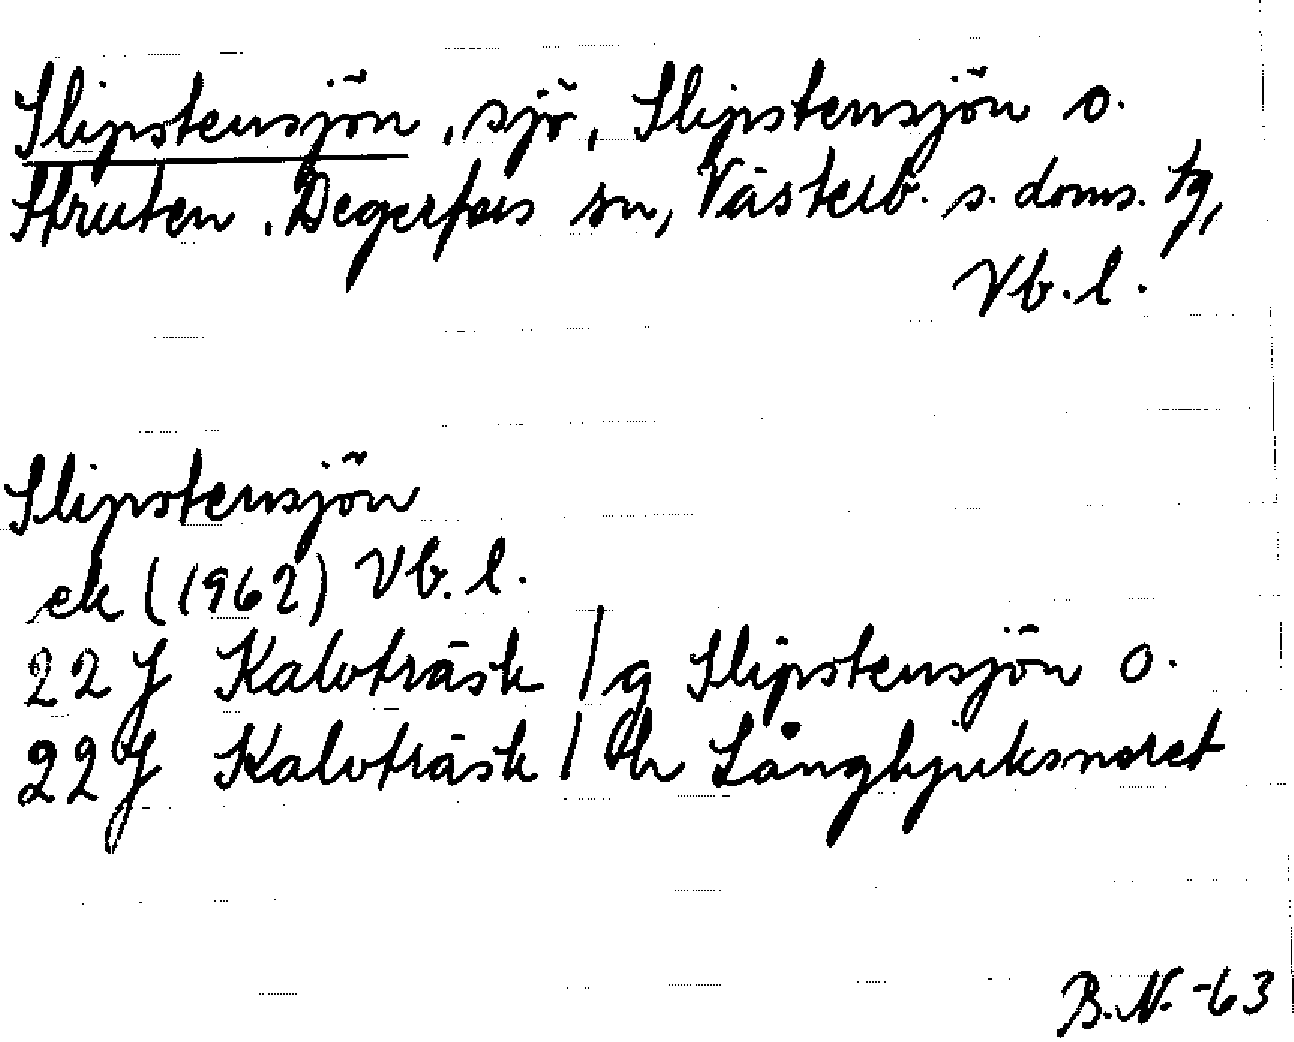 Slipstensjön, sjö, Slipstensjön o.
Skruten, Degerfors sn, Västerb. s. doms. tg,
Vb. l.
Slipstensjön
ek (1962) Vb. l.
22 J Kalvträsk / g Slipstensjön o.
22 J Kalvträsk / h Långbjuksnoret
B.N. -63